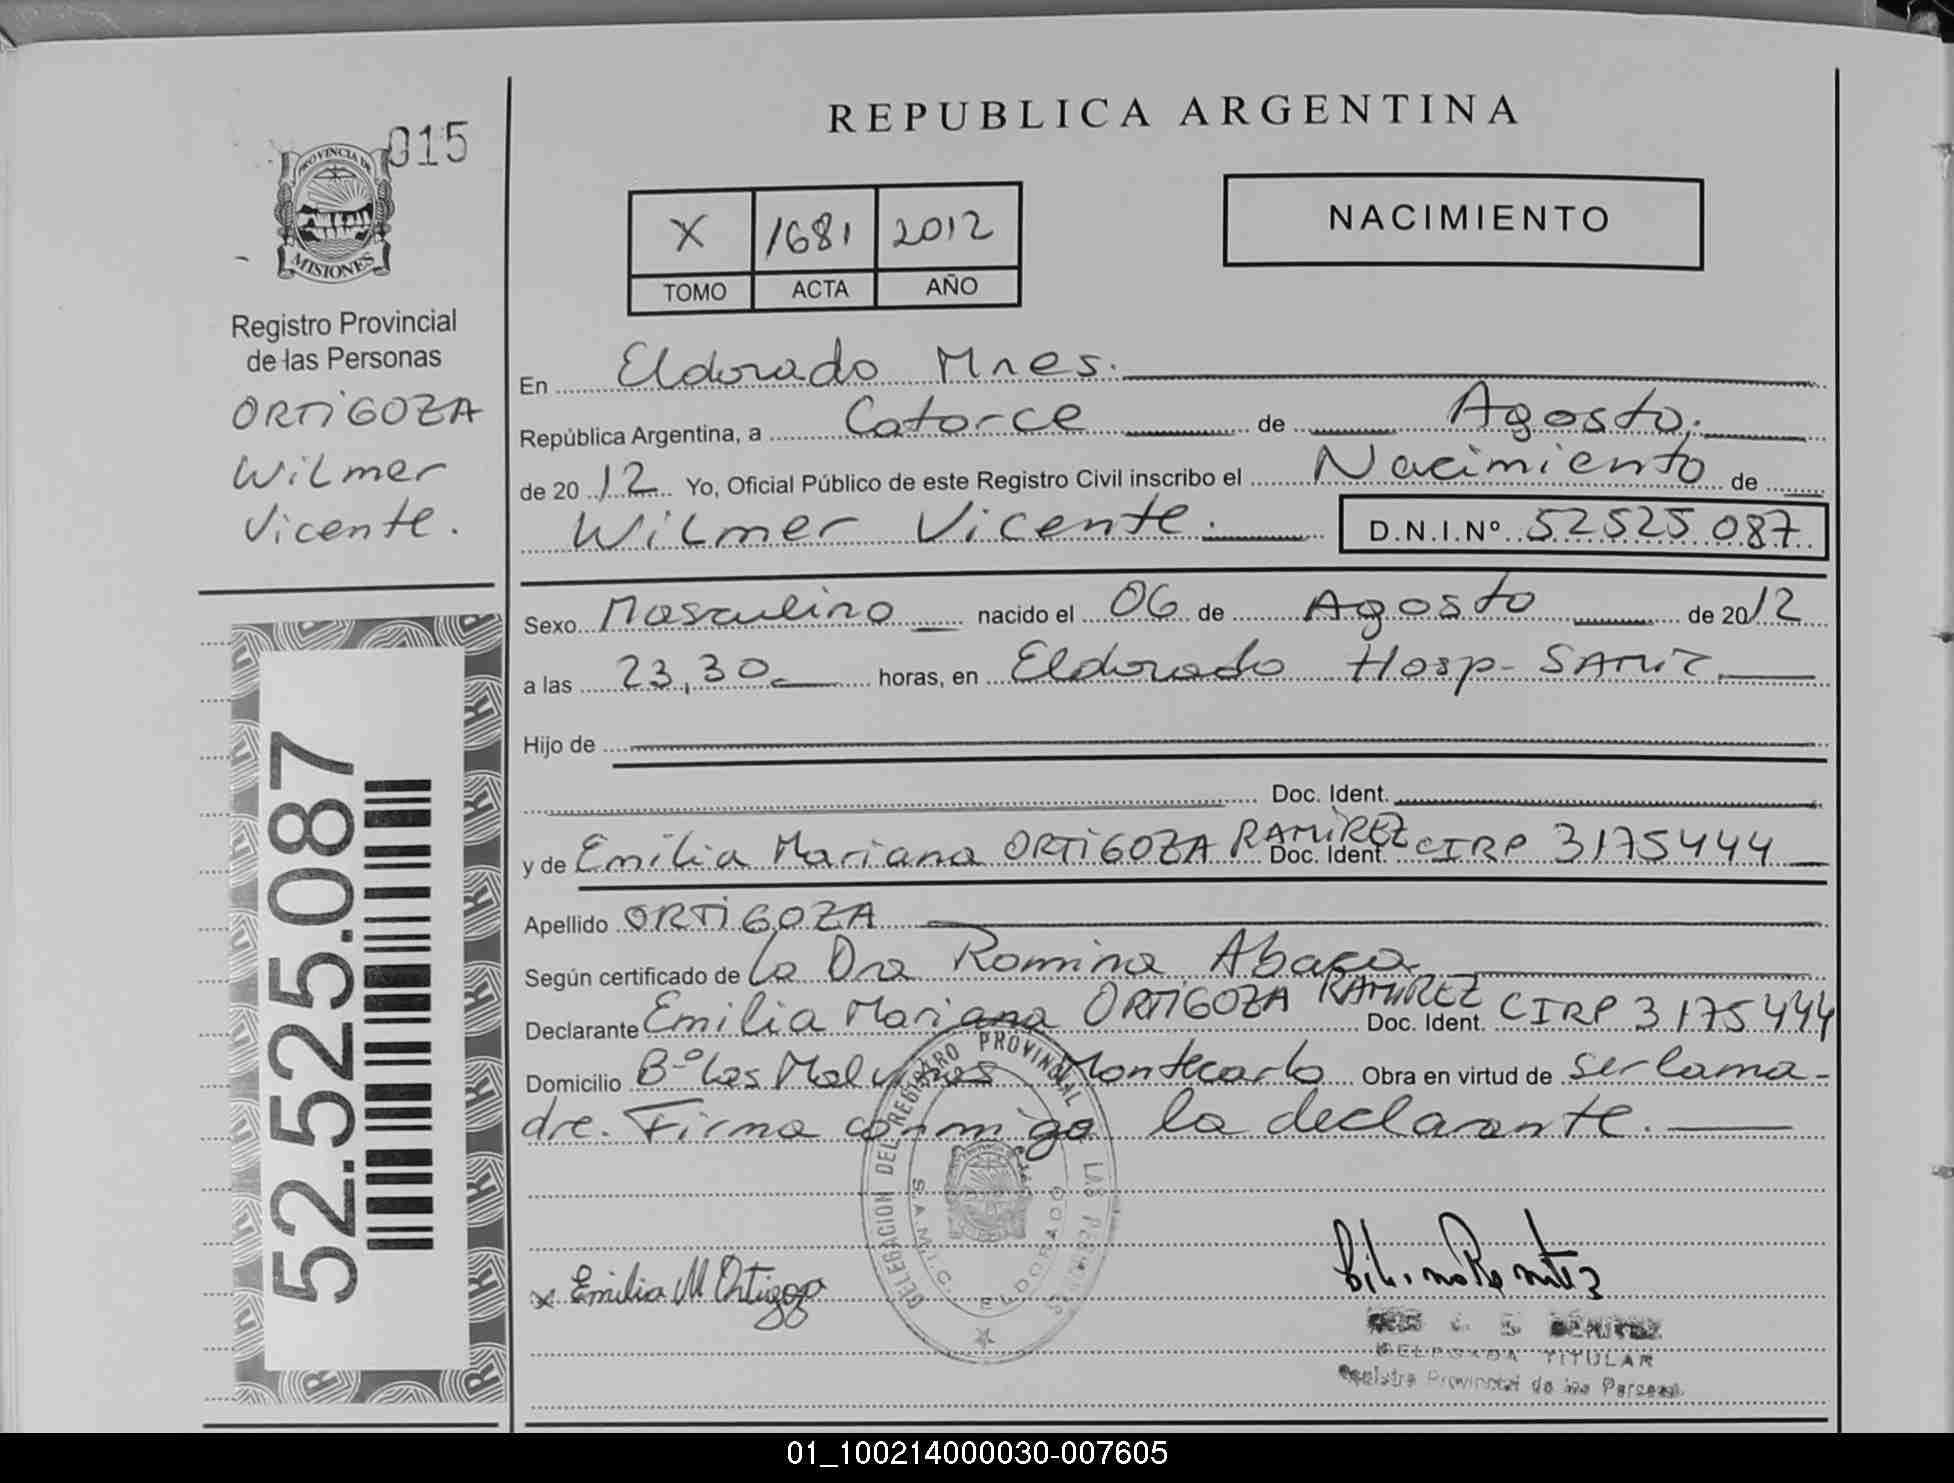 015
PROVINCIA DE
MISIONES
Registro Provincial
de las Personas
ORTIGOZA
Wilmer
Vicente.
52.525.087
REPUBLICA ARGENTINA
X 1681 2012
TOMO ACTA AÑO
NACIMIENTO
En Eldorado Mnes.
República Argentina, a Catorce de Agosto.
de 2012 Yo, Oficial Público de este Registro Civil inscribo el Nacimiento de
Wilmer Vicente. D.N.I.Nº 52525087
Sexo Masculino nacido el 06 de Agosto de 2012
a las 23,30 horas, en Eldorado Hosp- SAMIC
Hijo de
Doc. Ident.
y de Emilia Mariana ORTIGOZA RAMIREZ Doc. Ident. CIRP 3175444
Apellido ORTIGOZA
Según certificado de La Dra Romina Abaca
Declarante Emilia Mariana ORTIGOZA RAMIREZ Doc. Ident. CIRP 3175444
Domicilio Bº Las Malvinas Montecarlo Obra en virtud de ser la ma-
dre. Firma conmigo la declarante.
DELEGACION DEL REGISTRO PROVINCIAL DE LAS PERSONAS
S.A.M.I.C. ELDORADO
x Emilia M Ortigoza
BENITEZ
DELEGADA TITULAR
Registro Provincial de las Personas
01_100214000030-007605